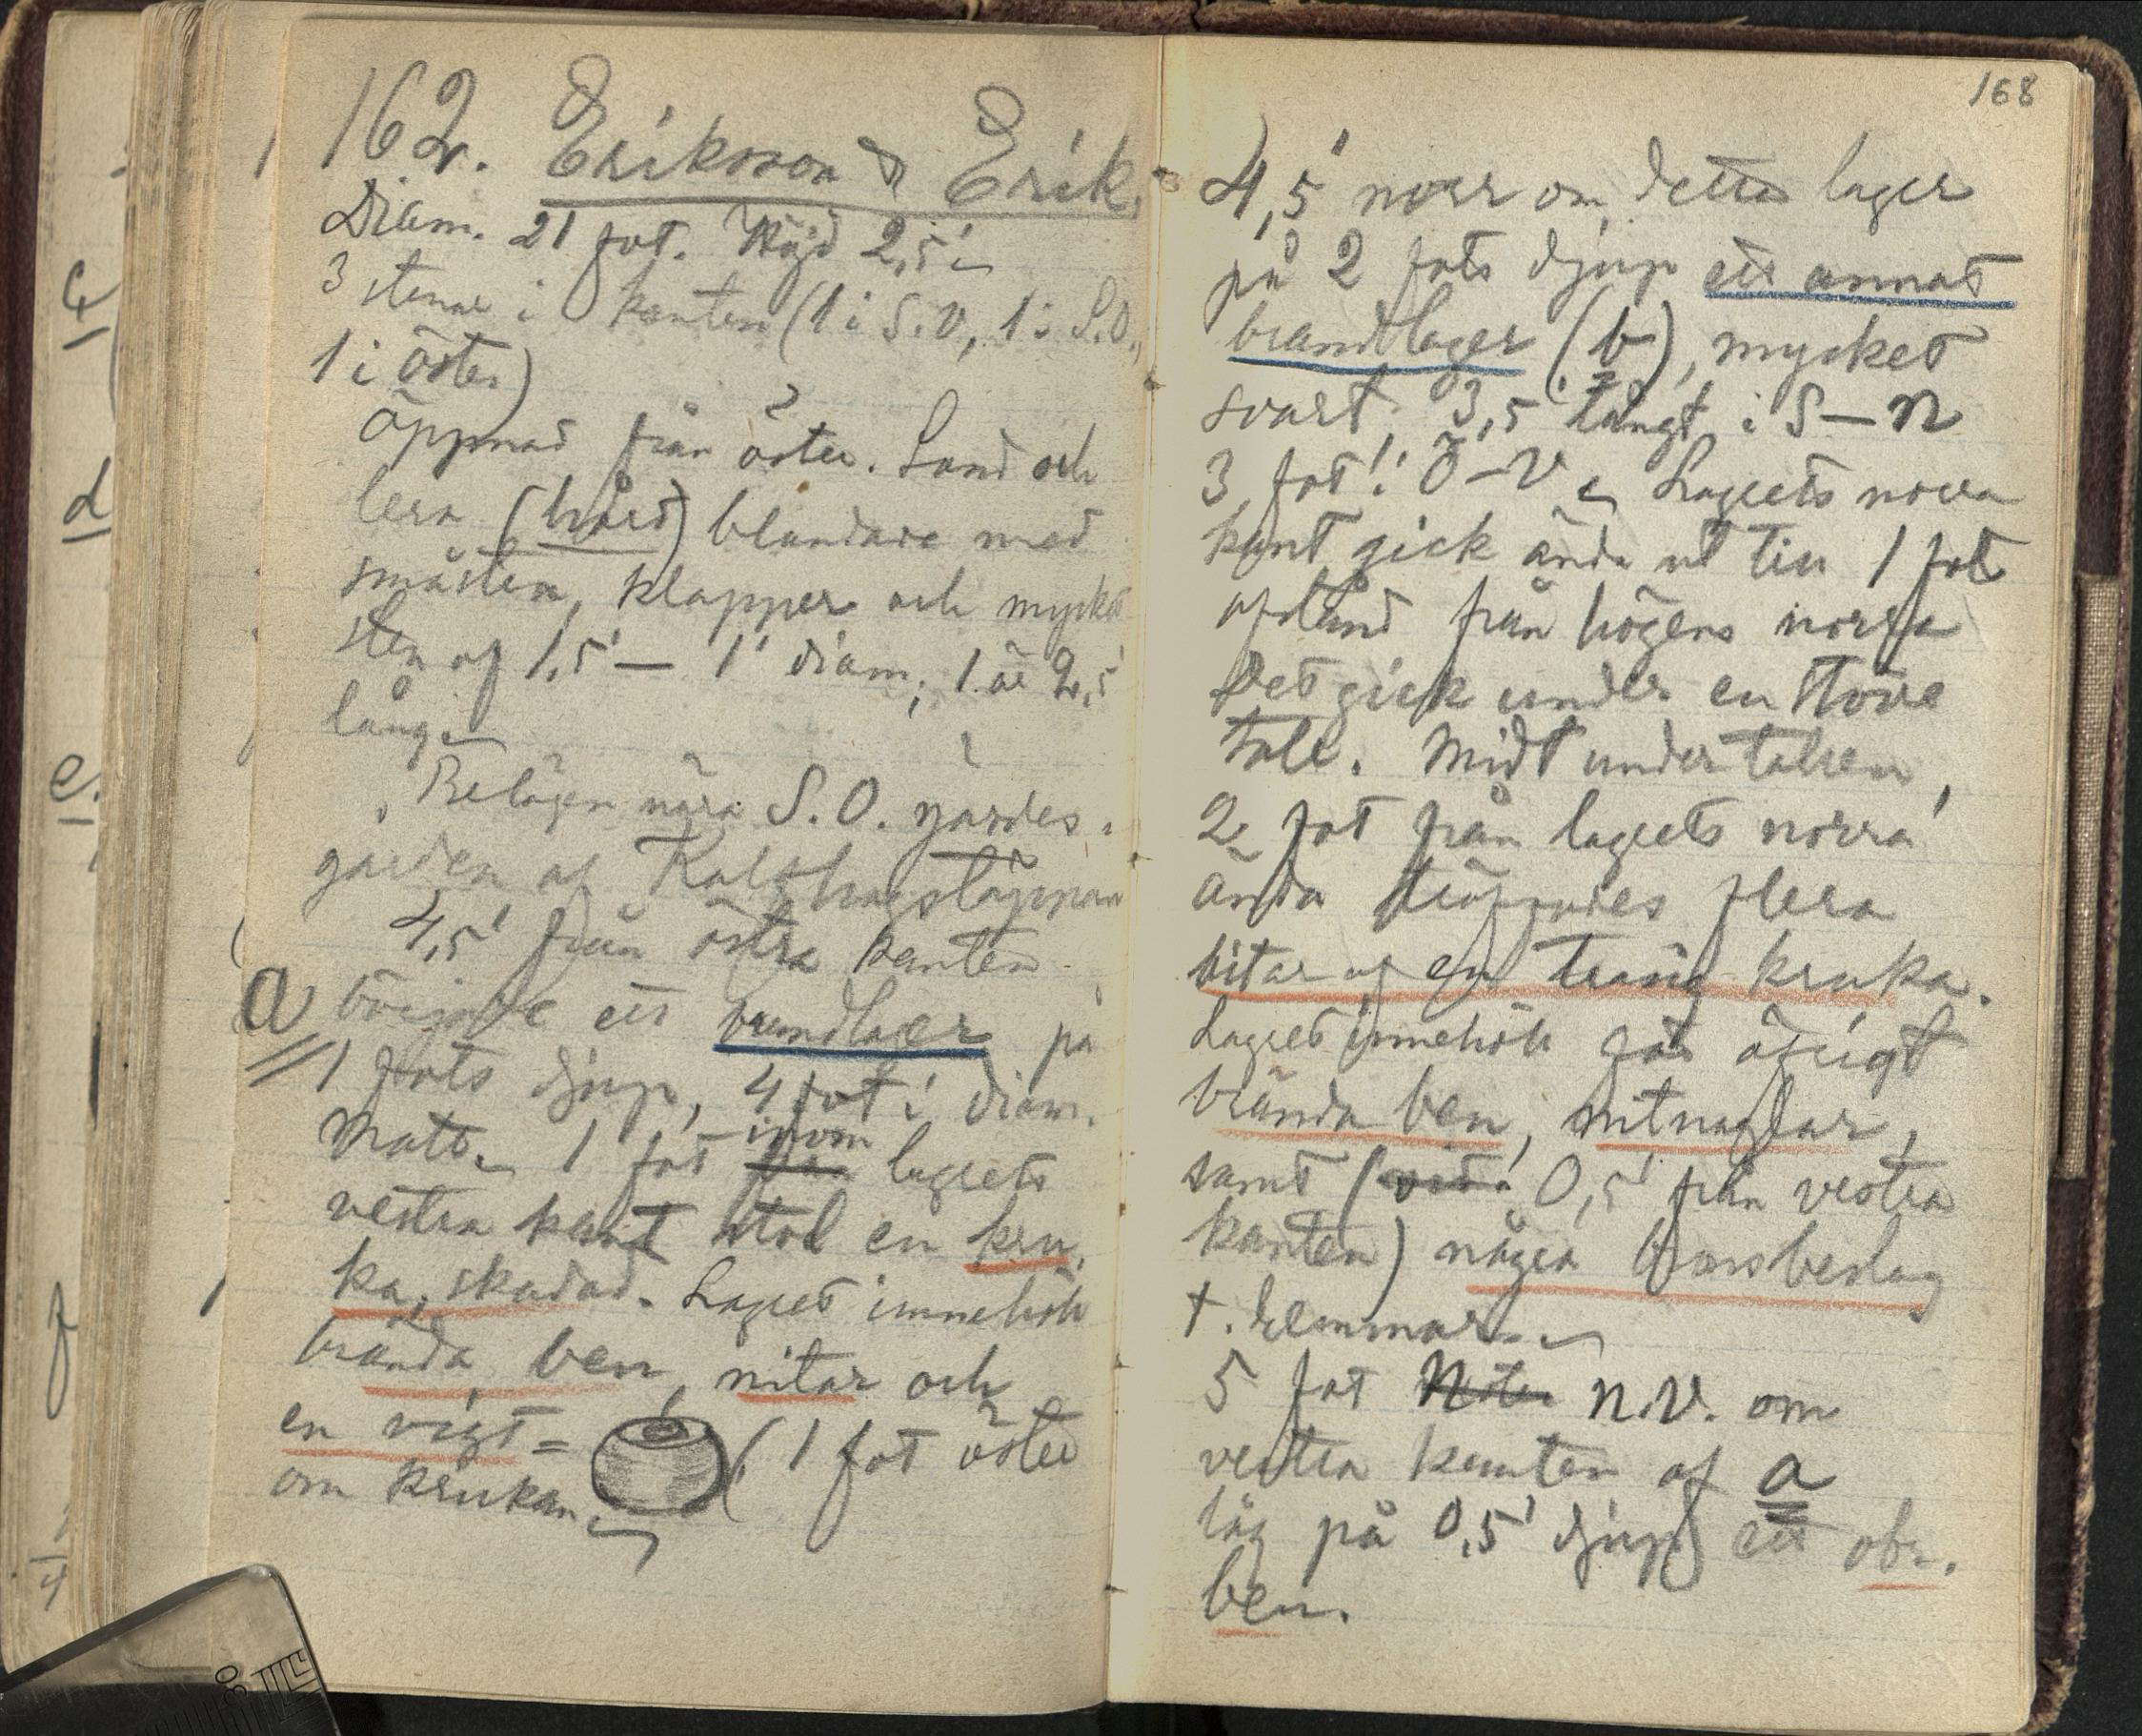 162. Eriksson & Erik.
Diam. 21 fot. Höjd 2,5'
3 stenar i kanten (1 i S.V, 1 i S.O.,
1 i öster)
Öppnad från öster. Sand och
lera (hård) blandade med
småsten, klapper och mycket
sten af 1,5' — 1' diam; 1 är 2,5'
lång.
Belägen nära S.O. gärdes-
gården af Kalfhagslägman
4,5' från östra kanten
a började ett brandlager på
1 fots djup, 4 fot i diam.
Matt. 1 fot inom lagrets
vestra kant stod en kru-
ka, skadad. Lagret innehöll
brända ben, nitar och
en vigt = (1 fot öster
om krukan
168
4,5' norr om detta lager
på 2 fots djup ett annat
brandlager (b), mycket
svart 3,5' långt i S—N
3 fot i Ö—V. Lagrets norra
kant gick ända ut till 1 fot
afstånd från högens norra
Det gick under en större
tall. Midt under tallen,
2 fot från lagrets norra
ända träffades flera
bitar af en trasig kruka.
Lagret innehöll för öfrigt
brända ben, nitnaglar,
samt (vid 0,5' från vestra
kanten) några bronsbeslag
t. remmar.
5 fot N.V. om
vestra kanten af a
låg på 0,5' djup ett obr.
ben.
f
d
e.
f